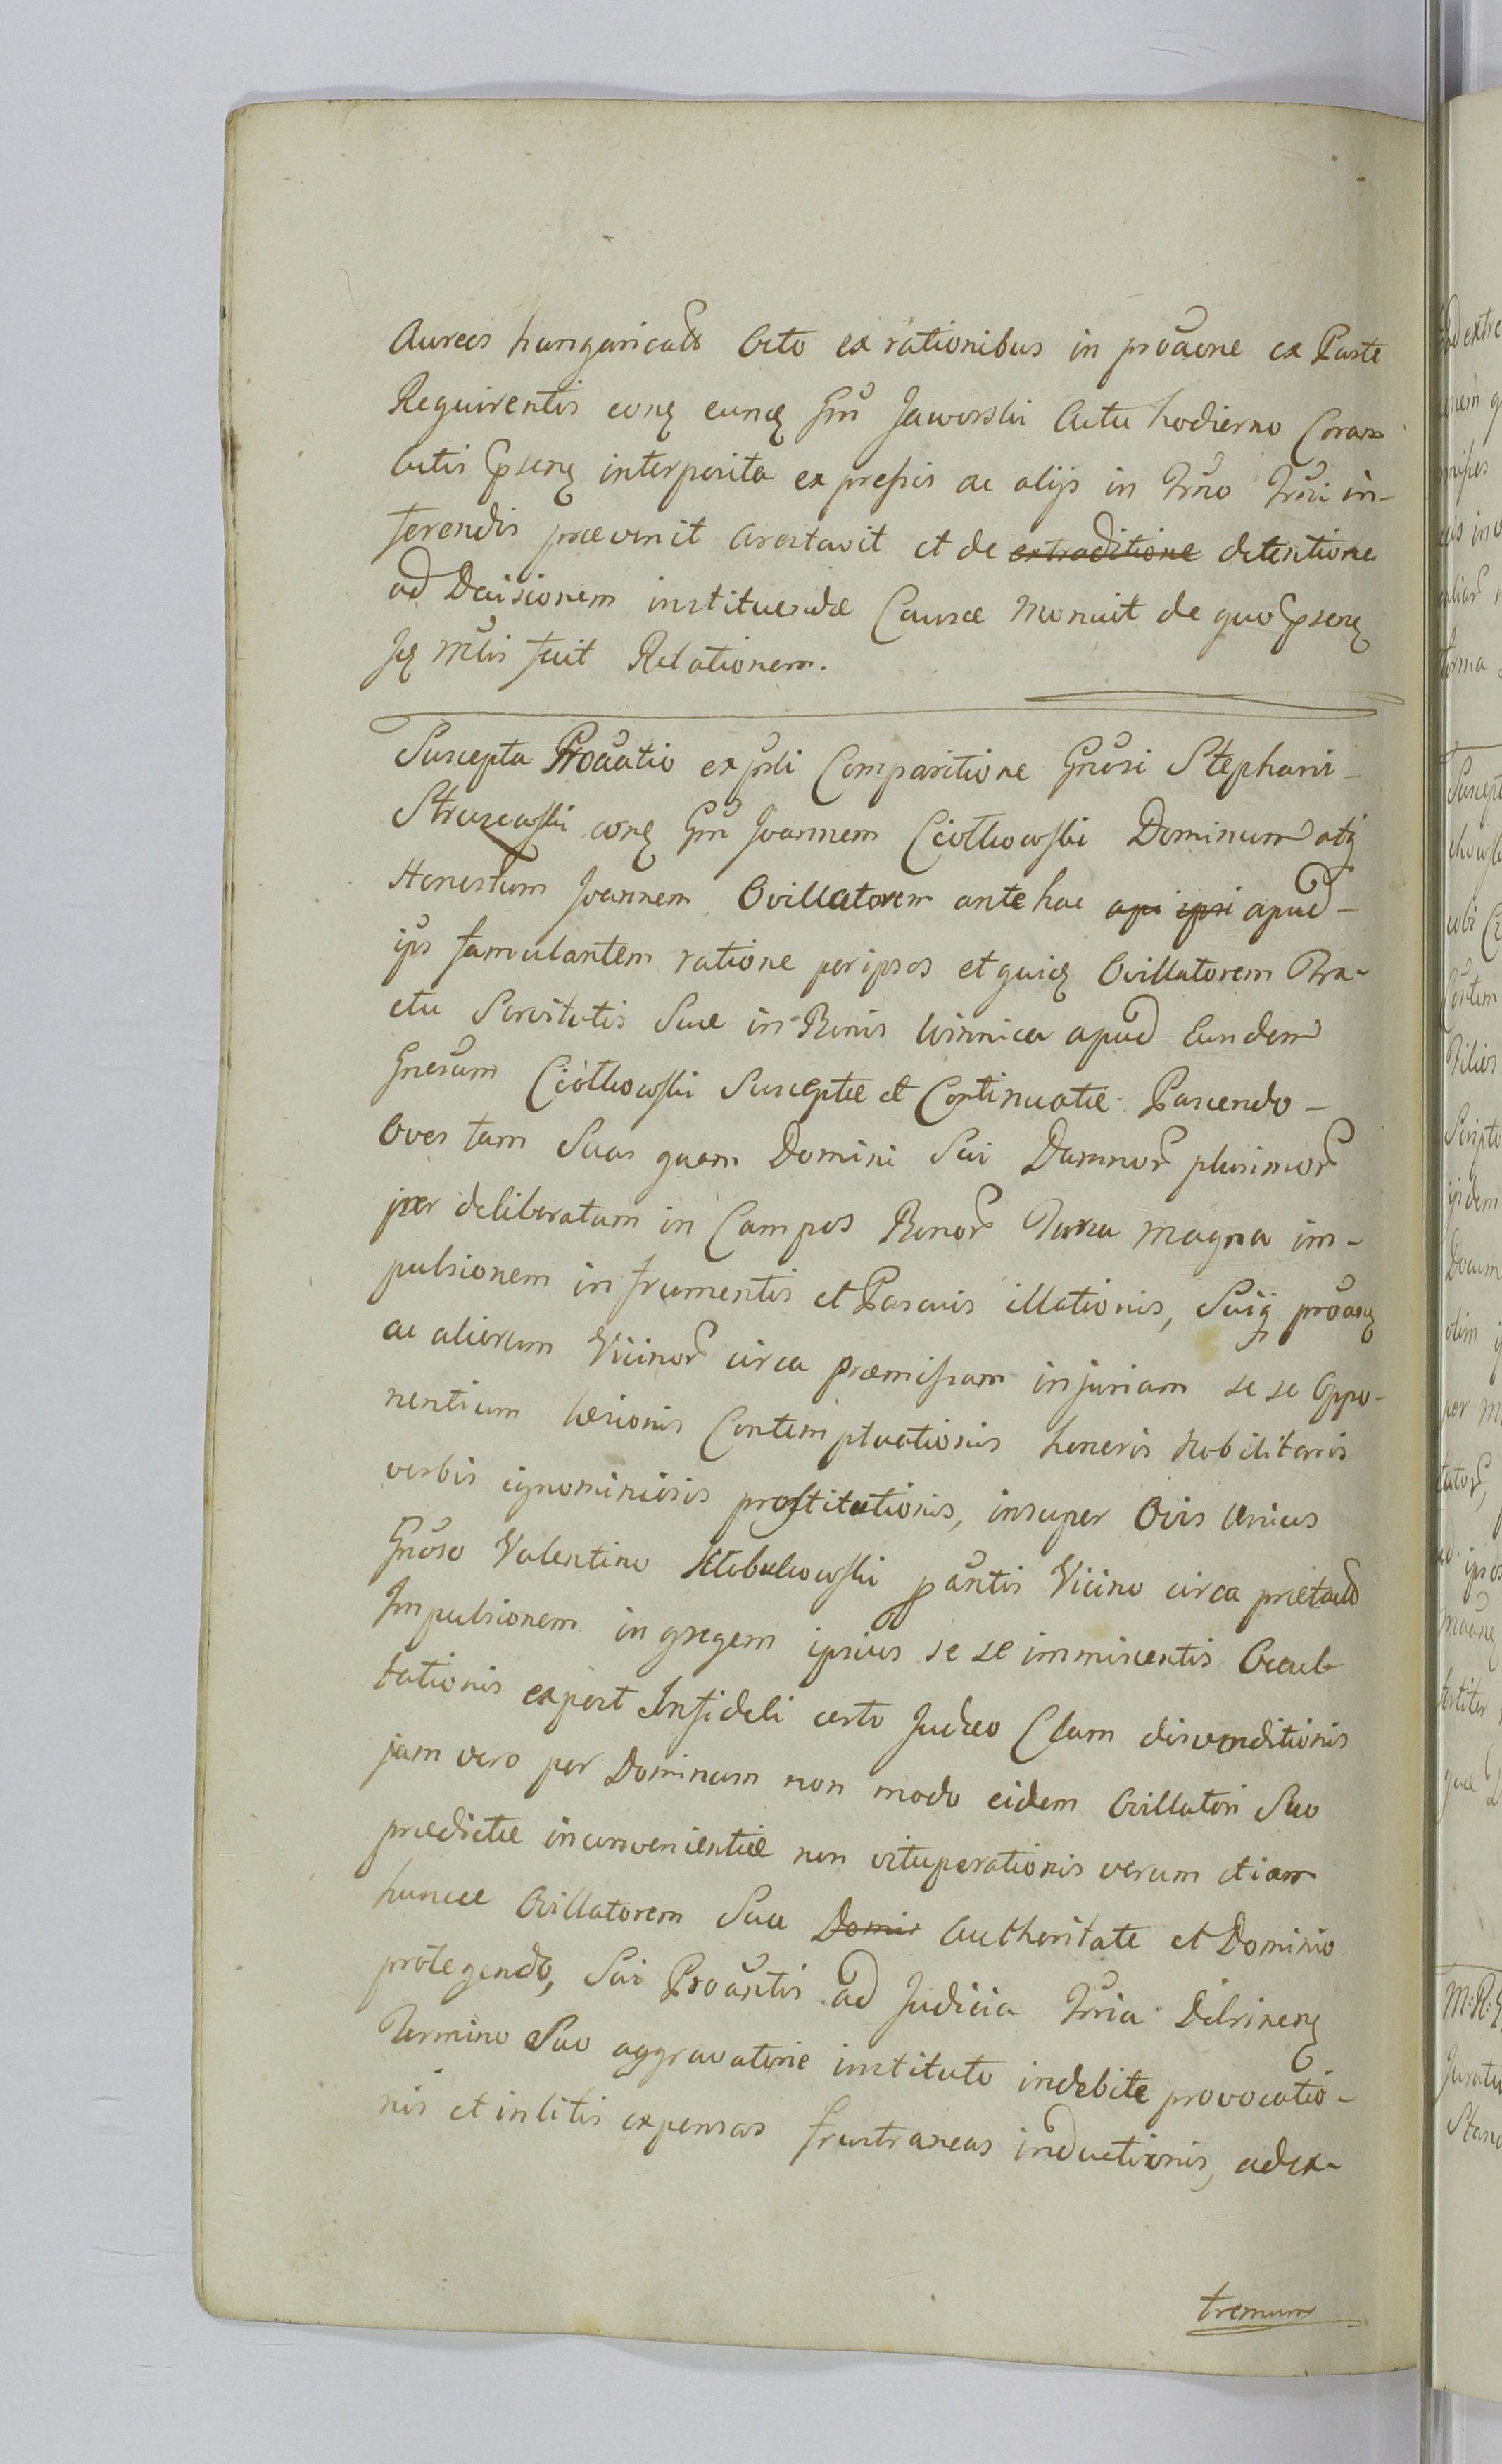 Aureos hungaricales Octo ex rationibus in proaõne ex Parte
Requirentis conq eunq Gm Jaworski Actu hodierno Coram
Actis pñsenq interposita expressis ac alijs in Trno Trri in-
ferendis prævenit arestavit et de extraditione detentione
ad Decisionem instituendæ Causæ monuit de quo pñsenq
Jq Mlis fecit Relationem.
Suscepta Proaatio ex psli Comparitione Gnosi Stephani
Struszewski conq Gm Joannem Ciołkowski Dominum atq
Honestum Joannem Ovillatorem ante hac api ipsi apud
ips famulantem ratione per ipsos et quiq Ovillatorem Tra-
ctu Servitutis Suæ in Bonis Winnica apud Eundem
Gnosum Ciołkowski Susceptæ et Continuatæ Pascendo
Oves tam Suas quam Domini Sui Damnor plurimor
per deliberatam in Campos Bonor Turza magna im-
pulsionem in frumentis et Pascuis illationis, Suiq proanq
ac aliorum Vicinor circa præmissam injuriam se se Oppo-
nentium læsionis Contemptuationis honoris Nobilitaris
verbis ignominiosis prostitutionis, insuper Ovis Unius
Gnoso Valentino Kłobukowski pantis Vicino circa prætact
Impulsionem in gregem ipsius se se immiscentis Occul-
tationis ex post Infideli certo Judæo Clam disvenditionis
jam vero per Dominum non modo eidem Ovillatori Suo
prædictæ inconvenientiæ non vituperationis verum etiam
huncce Ovillatorem Sua Domi Authoritate et Dominio
protegendo, Sui Proantis ad Judicia Trria Dobrinenq
Termino Suo aggravatorie instituto indebite provocatio-
nis et in litis expensas frustraneas inductionis, ad ex-
tremum